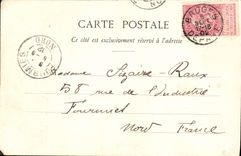 CARTE POSTALE
Ce côté est exclusivement réservé à l'adresse
BRUGES
DEPART
FOURMIES
NORD
Madame Ségaire-Raux
58 rue de l'Industrie
Fourmies
Nord France